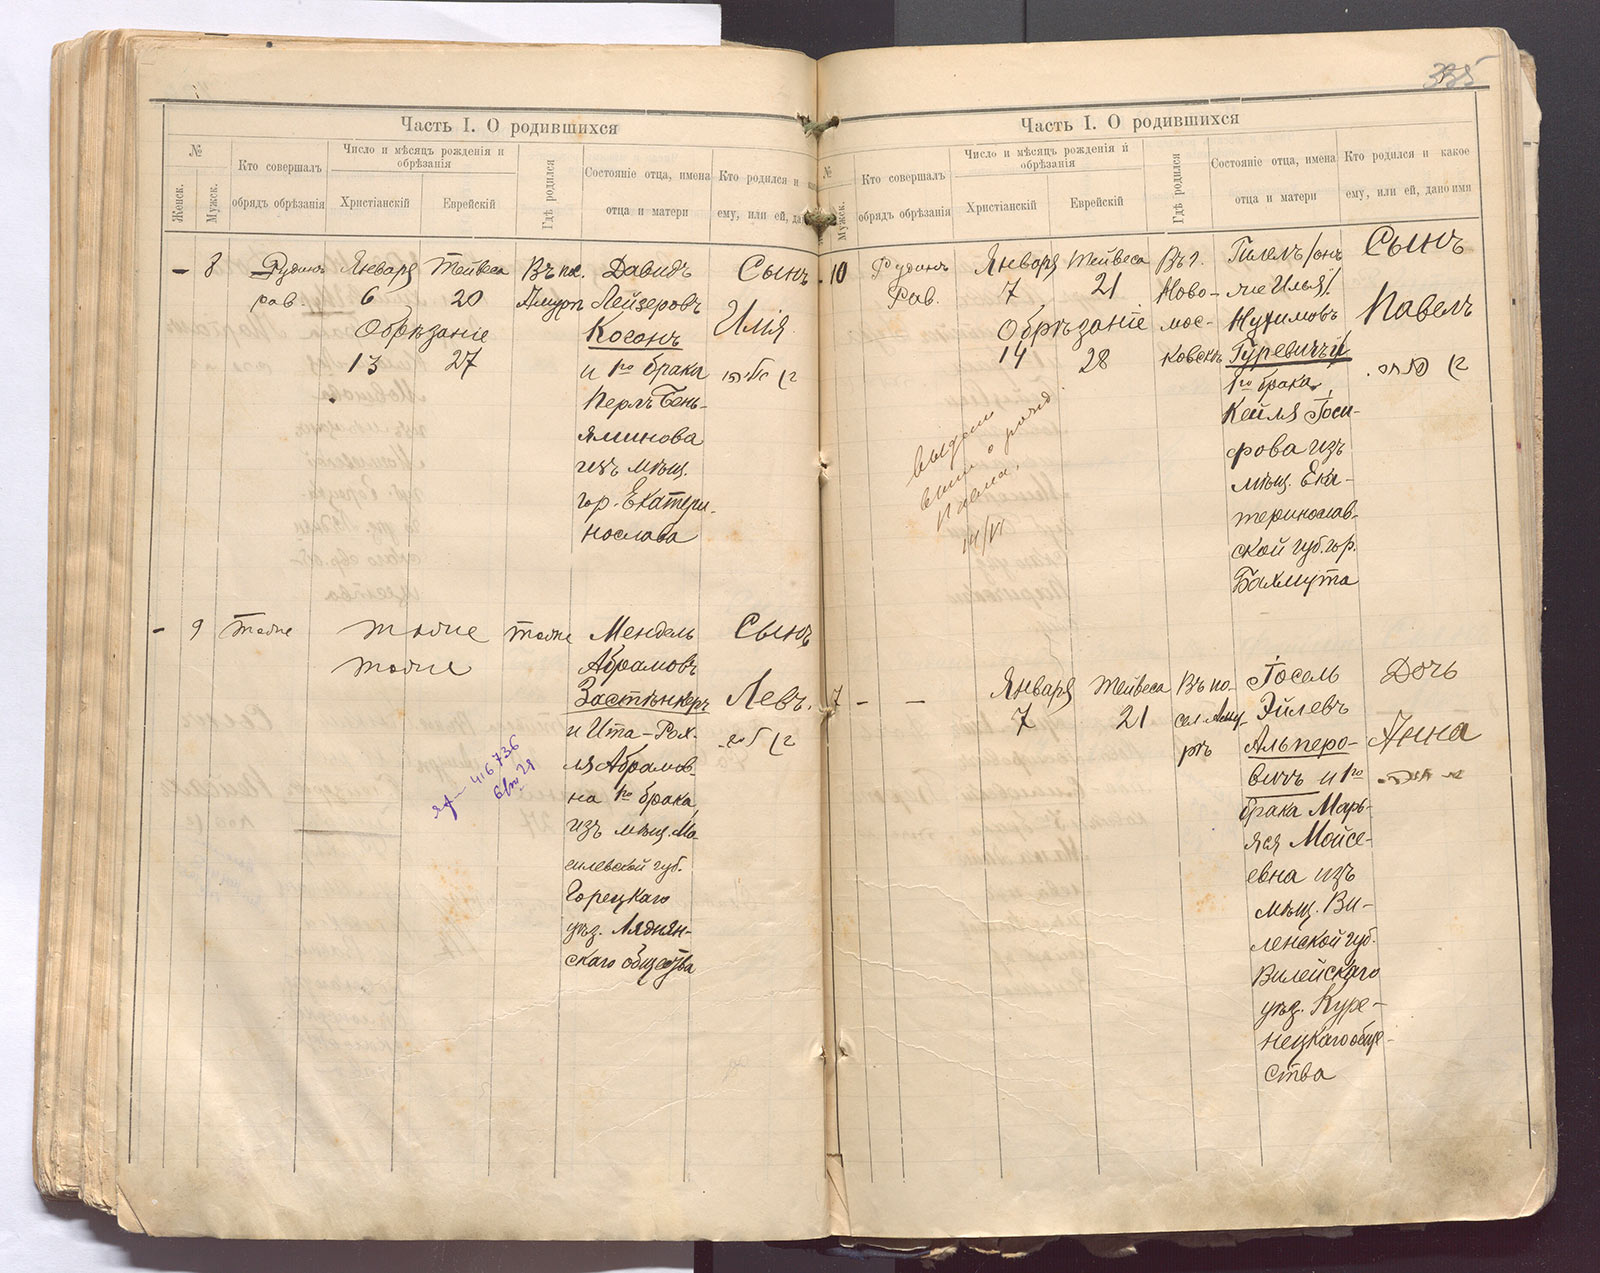 335
Часть I. О родившихся
№
Женск.
Мужск.
Кто совершалъ
обрядъ обрѣзанія
Число и мѣсяцъ рожденія и
обрѣзанія
Христіанскій
Еврейскій
Гдѣ родился
Состояніе отца, имена
отца и матери
Кто родился и
ему, или ей, да
– 8
Рудинъ
рав.
Января
6
Тейвеса
20
Обрѣзаніе
13
27
Въ пос.
Амуръ
Давидъ
Лейзеровъ
Коганъ
и 1го брака
Перлъ Бень-
яминова
изъ мѣщ.
гор. Екатери-
нослава
Сынъ
Илія
– 9
тоже
тоже
тоже
тоже
Мендель
Абрамовъ
Застѣнкеръ
и Ита-Рох-
ля Абрамов-
на 1го брака
изъ мѣщ. Мо
гилевской губ.
Горецкаго
уѣз. Ляднян-
скаго общества
Сынъ
Левъ.
416736
Часть I. О родившихся
№
Мужск.
Кто совершалъ
обрядъ обрѣзанія
Число и мѣсяцъ рожденія и
обрѣзанія
Христіанскій
Еврейскій
Гдѣ родился
Состояніе отца, имена
отца и матери
Кто родился и какое
ему, или ей, дано имя
10
Рудинъ
Рав.
Января
7
Тейвеса
21
Обрѣзаніе
14
28
Въ г.
Ново-
мос-
ковскъ
Гилелъ /онъ
же Илья/
Нухимовъ
Гуревичъ и
1го брака
Кейля Іоси-
фова изъ
мѣщ. Ека-
теринослав-
ской губ. гор.
Бахмута
Сынъ
Павелъ
выдана
вып. о рожд
Павла
7 – –
Января
7
Тейвеса
21
Въ по-
сел. Аму-
ръ
Іосель
Эйлевъ
Альперо-
вичъ и 1го
брака Марь-
яся Мойсе-
евна изъ
мѣщ. Ви-
ленской губ.
Вилейскаго
уѣз. Куре-
нецкаго обще-
ства
Дочь
Анна